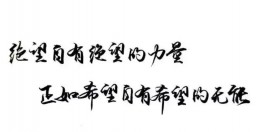 绝望自有绝望的力量
正如希望自有希望的无能